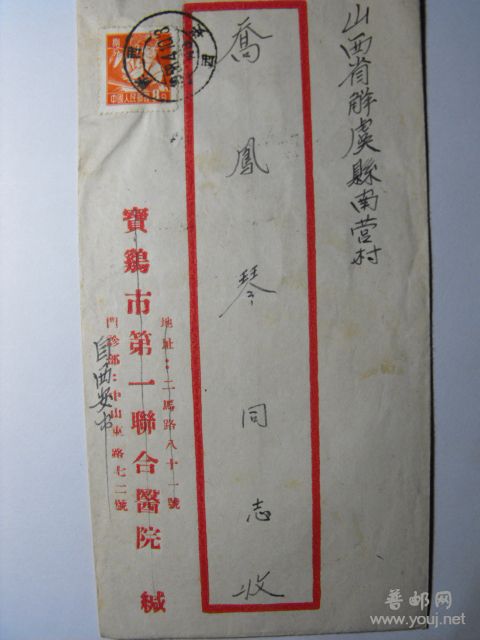 山西省解虞縣南營村
喬鳳琴同志收
地址：二馬路八十一號
寶鷄市第一聯合醫院 緘
門診部：中山東路七二號
自西安市
中國人民郵政
普邮网
www.youj.net